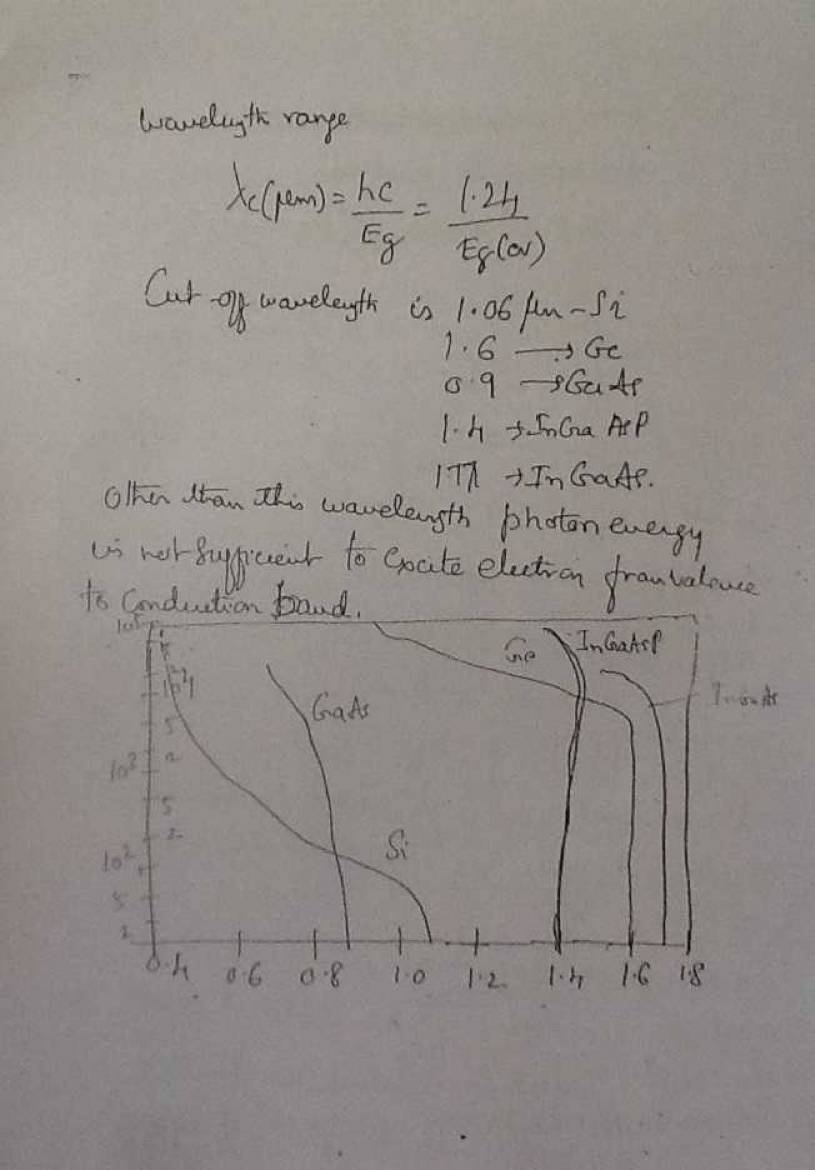 Wavelength range
λc(μm) = hc/Eg = 1.24/Eg(ev)
Cut-off wavelength is 1.06 μm - Si
1.6 → Ge
0.9 → GaAs
1.4 → InGaAsP
→ InGaAs.
Other than this wavelength photon energy
is not sufficient to excite electron from valence
to Conduction band.
10⁵
Ge
InGaAsP
10⁴
GaAs
InGaAs
5
10³
2
5
2
Si
10²
5
2
0.4 0.6 0.8 1.0 1.2 1.4 1.6 1.8